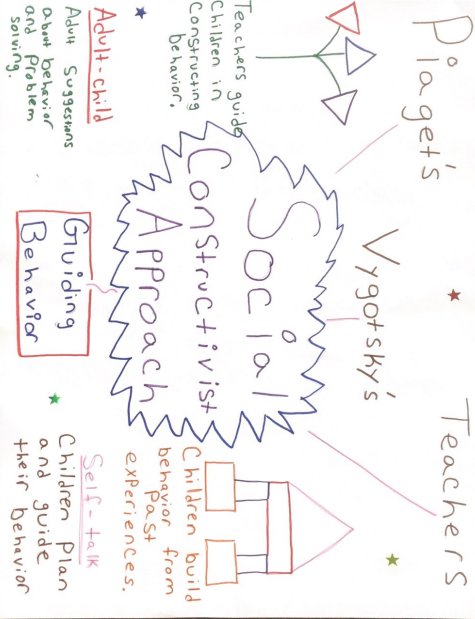 Piaget's
Vygotsky's
Teachers
Social
Constructivist
Approach
Teachers guide
Children in
Constructing
behavior.
Children build
behavior from
past
experiences.
Adult-child
Adult suggestions
about behavior
and problem
solving.
Guiding
Behavior
Self-talk
Children plan
and guide
their behavior